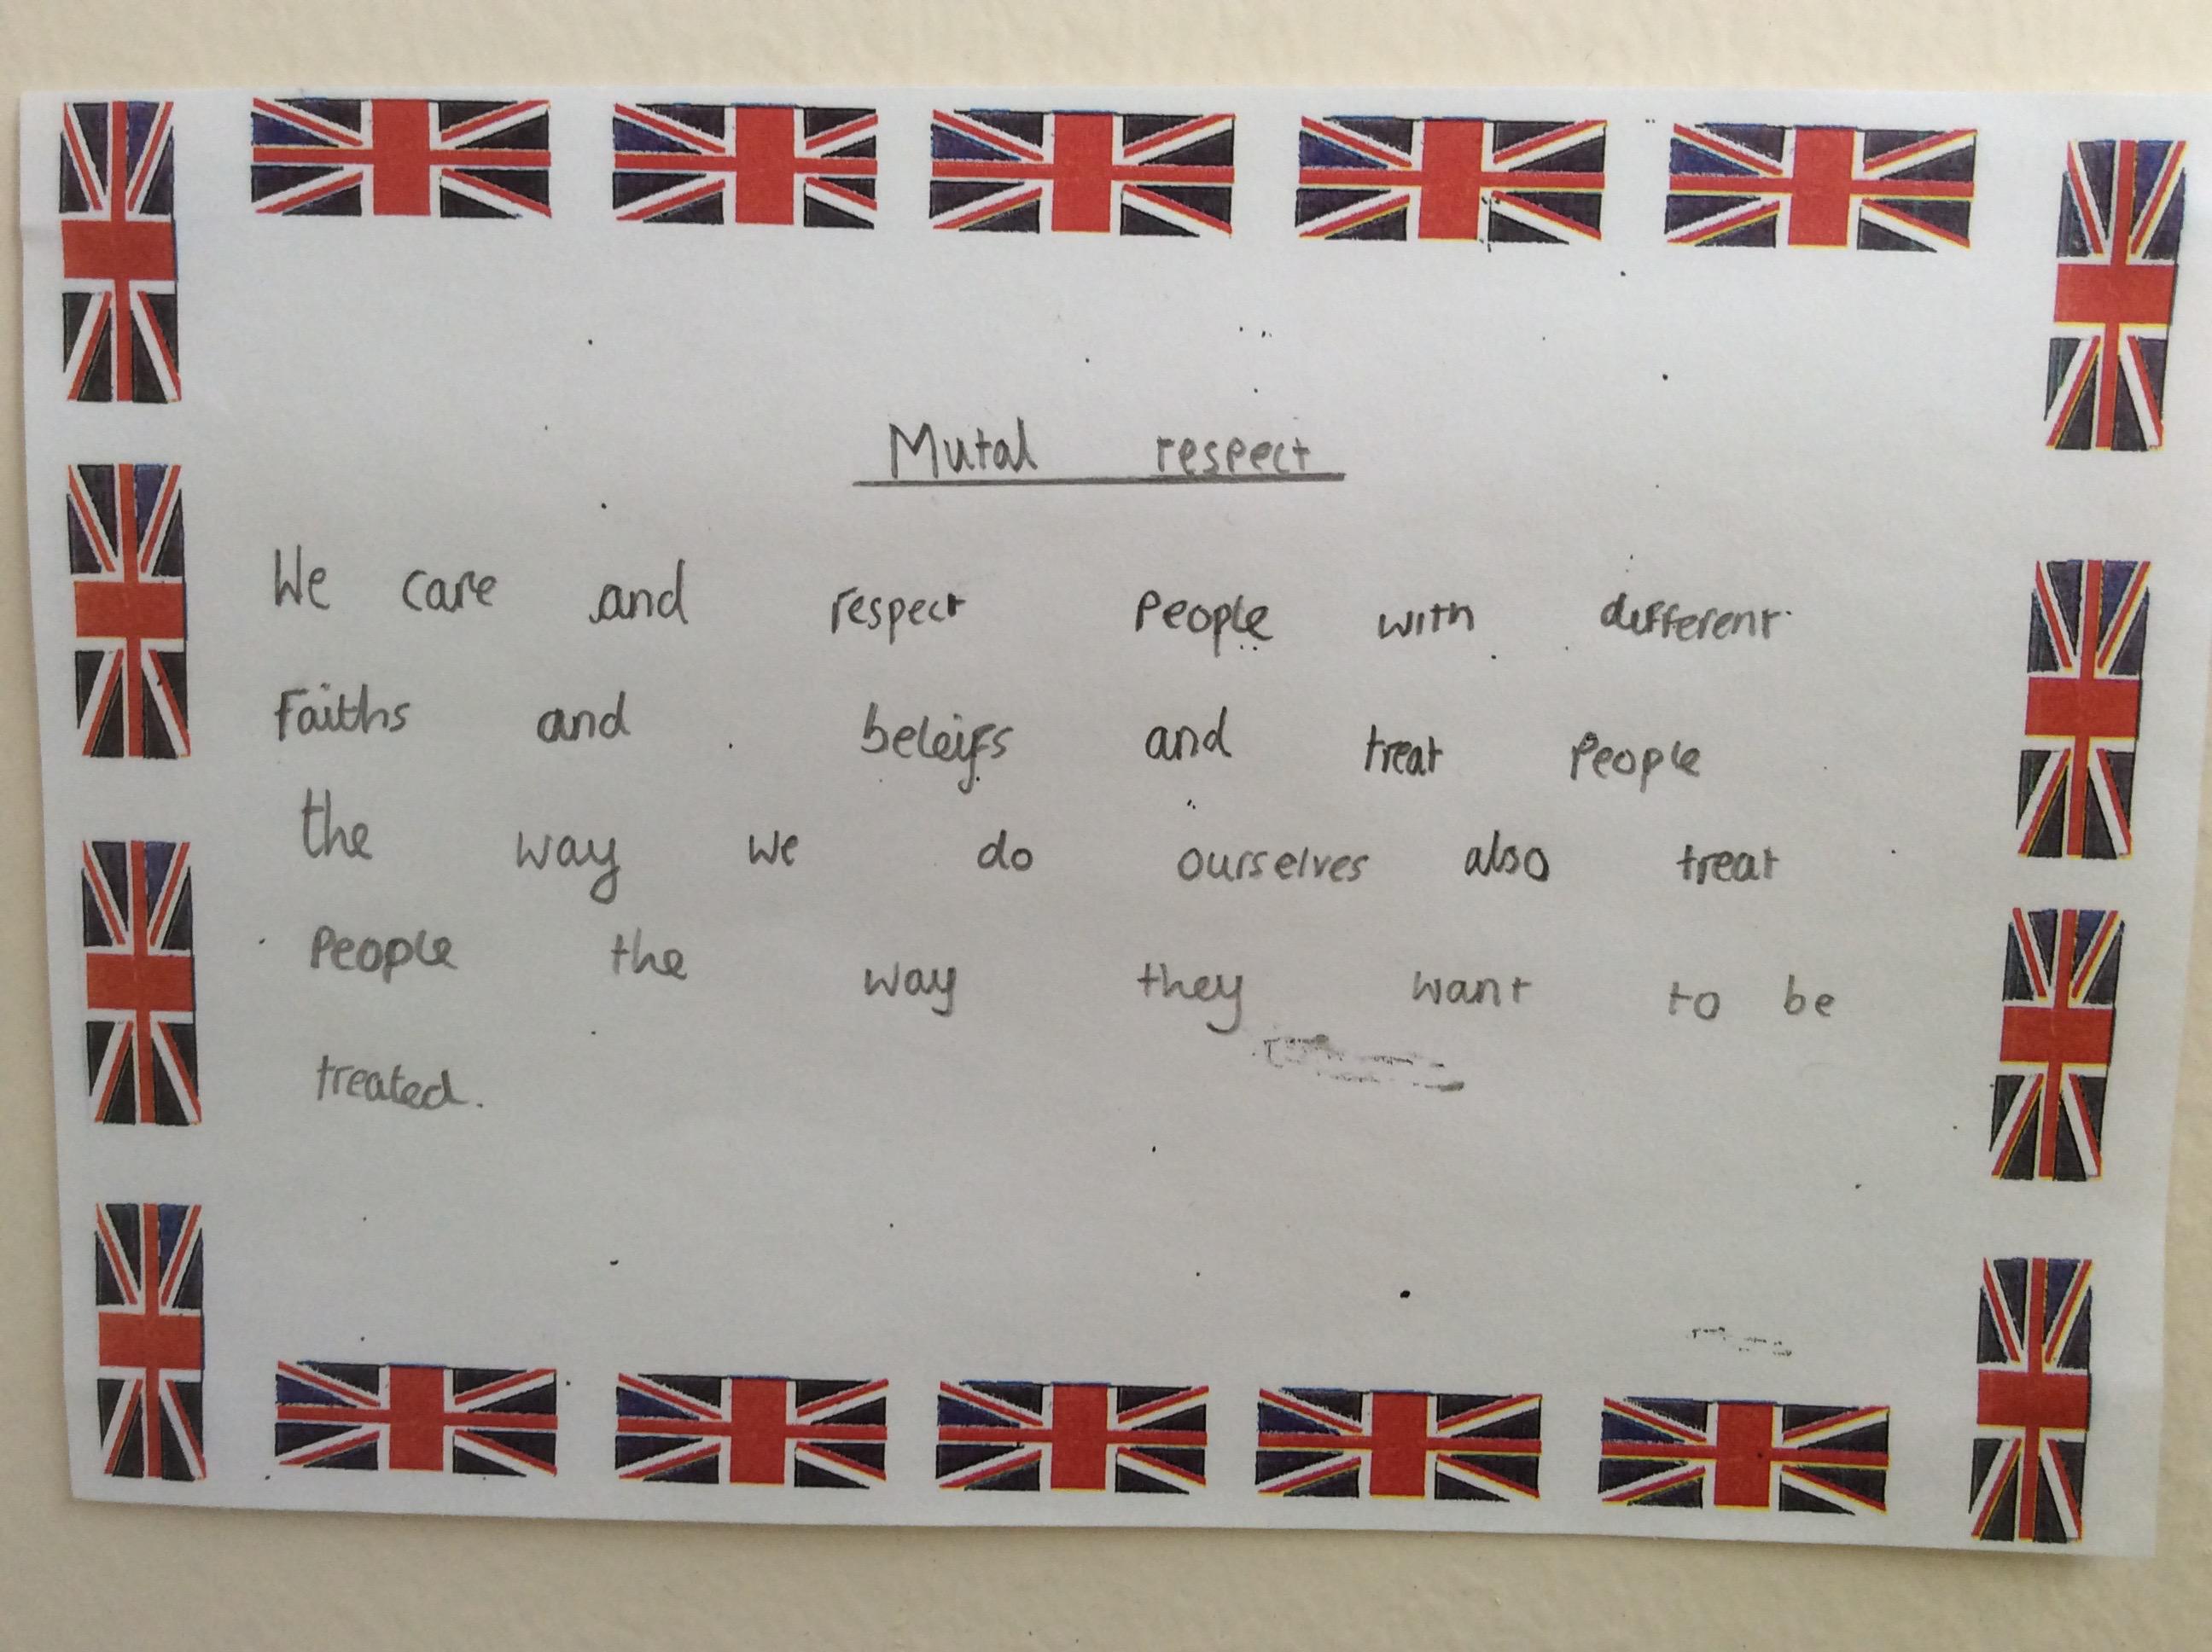 Mutal respect
We care and respect People with different
Faiths and beleifs and treat People
the way we do ourselves also treat
People the way they want to be
treated.